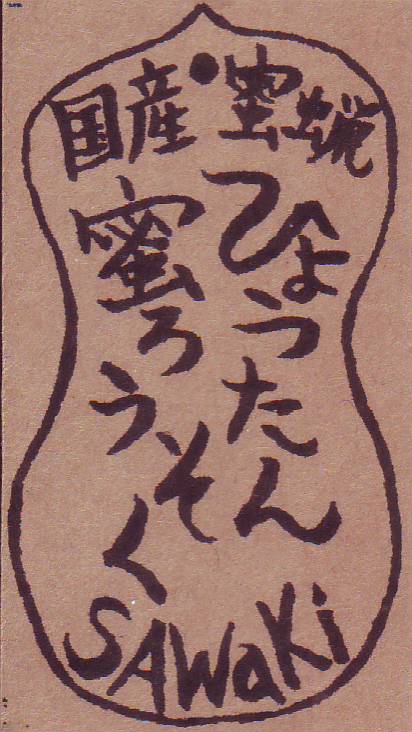 国産・蜜蝋
ひょうたん
蜜ろうそく
SAWaKi